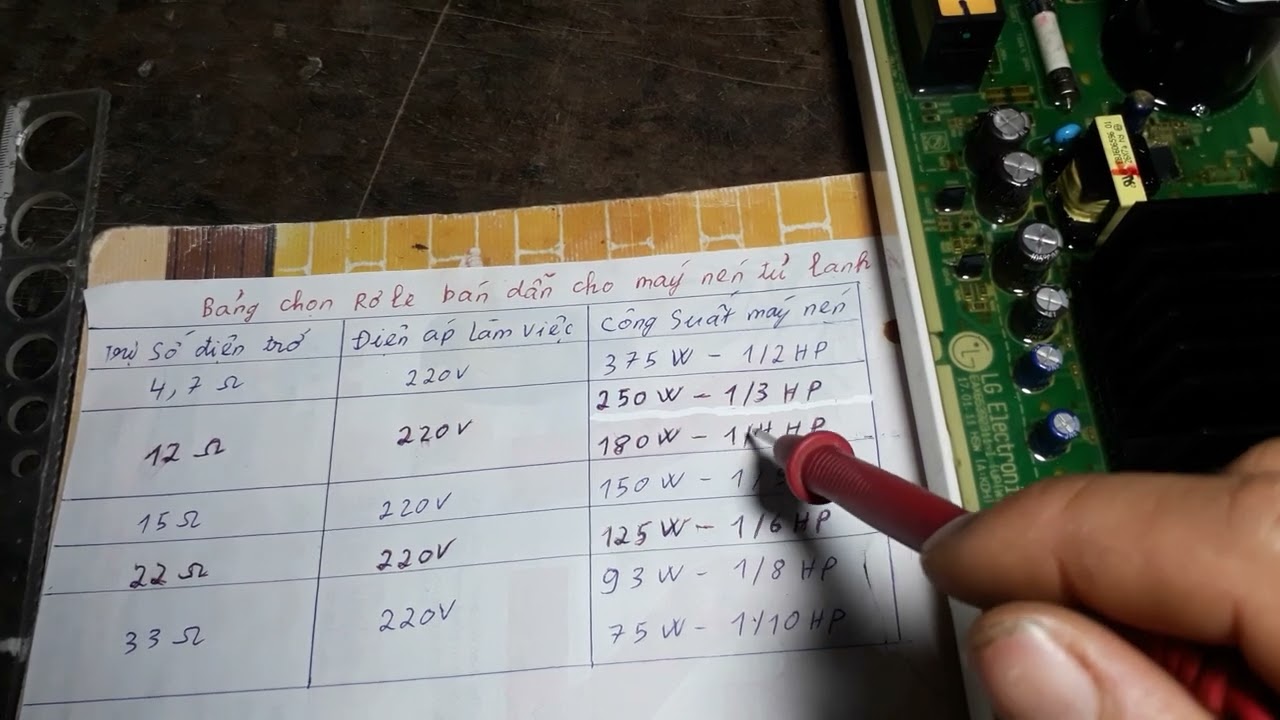 Bảng chọn Rơ le bán dẫn cho máy nén tủ lạnh
Trị số điện trở
Điện áp làm việc
Công suất máy nén
4,7 Ω
220V
375 W - 1/2 HP
12 Ω
220V
250 W - 1/3 HP
180 W - 1/4 HP
15 Ω
220V
150 W - 1/5
22 Ω
220V
125 W - 1/6 HP
33 Ω
220V
93 W - 1/8 HP
75 W - 1/10 HP
LG Electroni